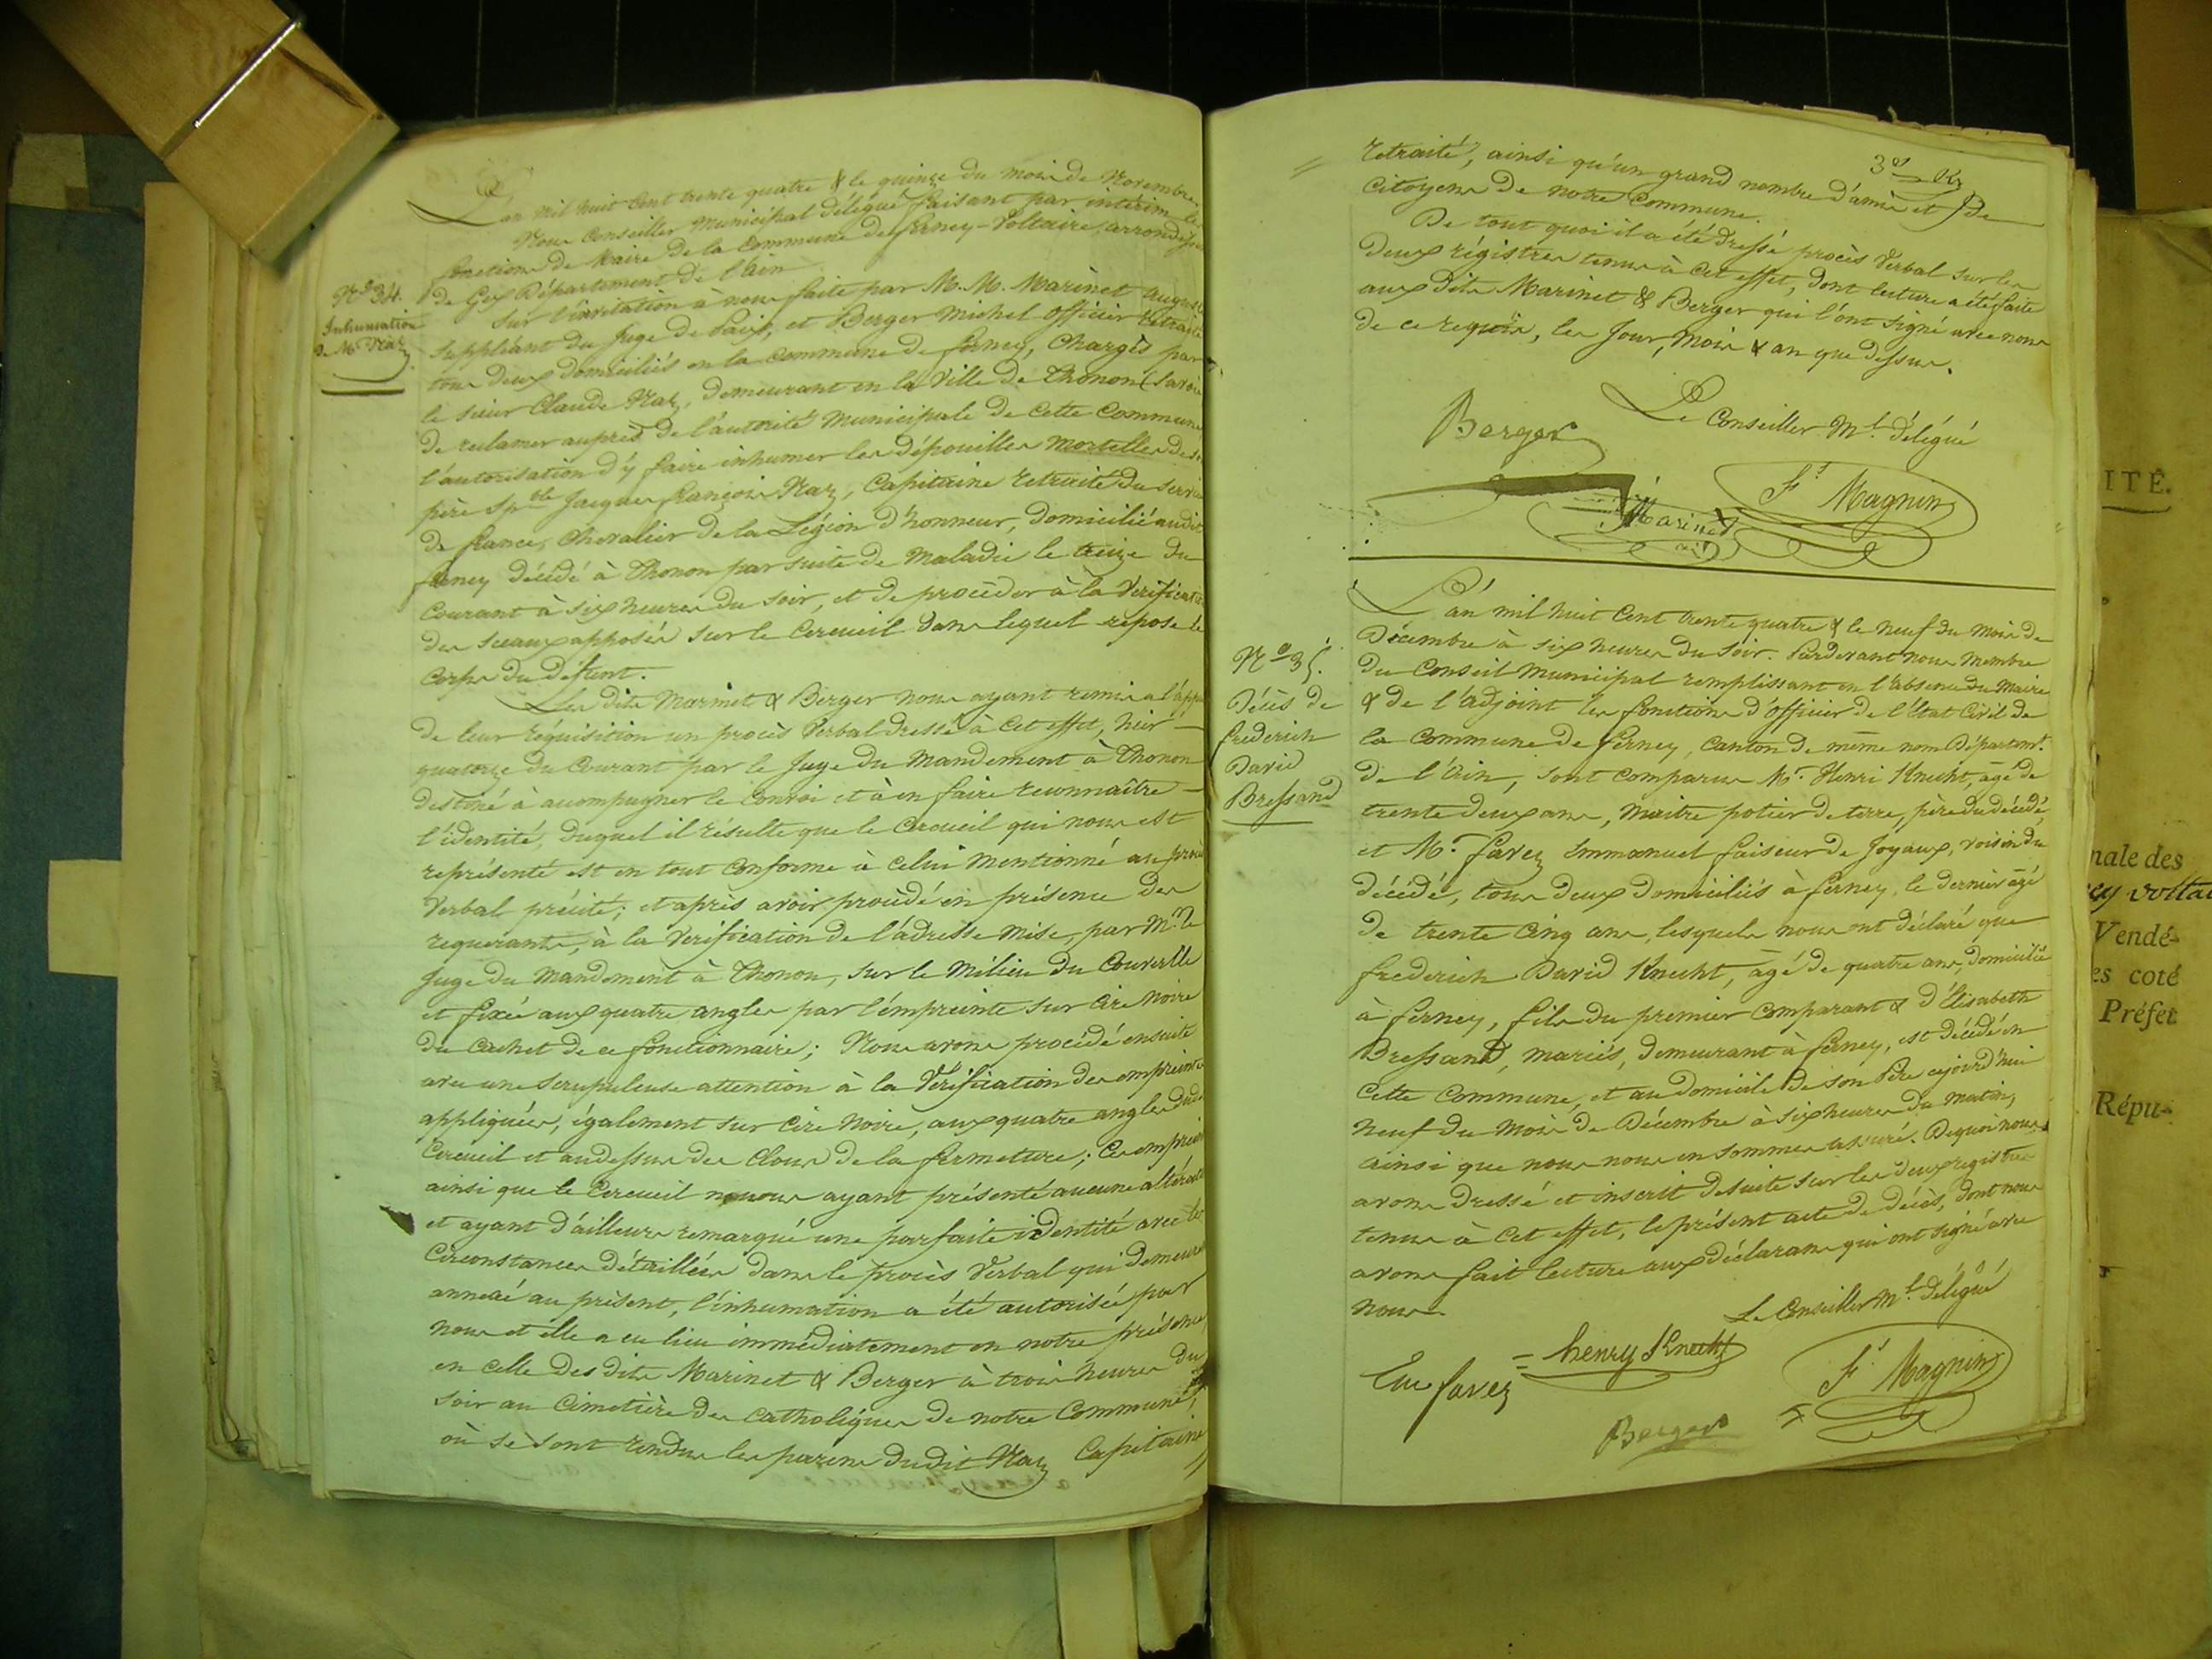 L'an mil huit cent trente quatre & le quinze du mois de Novembre,
Nous Conseiller Municipal délégué faisant par intérim les
fonctions de Maire de la Commune de ferney-Voltaire, arrondisse
de Gex Département de l'ain
N° 34.
Inhumation
de Mr Naz
Sur l'invitation à nous faite par M. M. Marinet august
suppléant du Juge de Paix, et Berger Michel officier retraité
tous deux domiciliés en la commune de ferney, chargés par
le sieur Claude Naz, demeurant en la Ville de Thonon (Savoie
de reclamer auprès de l'autorité Municipale de cette Commune
l'autorisation d'y faire inhumer les dépouilles mortelles de
père Jacques françois Naz, Capitaine retraité du service
de france, chevalier de la Légion d'honneur, domicilié audit
ferney décédé à Thonon par suite de maladie le treize du
Courant à six heures du soir, et de procéder à la Vérificat
des sceaux apposés sur le Cercueil dans lequel repose le
Corps du Défunt.
Les dits Marinet & Berger nous ayant remis à l'appui
de leur réquisition un procès Verbal dressé à cet effet, hier
quatorze du Courant par le Juge du Mandement à Thonon
destiné à accompagner le convoi et à en faire reconnaître
l'identité, duquel il résulte que le Cercueil qui nous est
représenté est en tout conforme à celui mentionné au procès
Verbal précité; et après avoir procédé en présence des
requerants, à la Vérification de l'adresse mise, par Mr le
Juge du Mandement à Thonon, sur le milieu du Couvercle
et fixée aux quatre angles par l'empreinte sur Cire Noire
du Cachet de ce fonctionnaire; Nous avons procédé ensuite
avec une scrupuleuse attention à la Vérification des empreintes
appliquées, également sur Cire Noire, aux quatre angles dudit
Cercueil et audessus des Clous de la fermetture; Ces emprein
ainsi que le Cercueil ne nous ayant présenté aucune altérati
et ayant d'ailleurs remarqué une parfaite identité avec les
Circonstances détaillées dans le procès Verbal qui demeure
annexé au présent, l'inhumation a été autorisée par
nous et elle a eu lieu immédiatement en notre présence,
en celle des dits Marinet & Berger à trois heures du
soir au Cimetière des Catholiques de notre Commune,
où se sont rendus les parens dudit Naz Capitaine
retraité, ainsi qu'un grand nombre d'amis et de
Citoyens de notre Commune.
De tout quoi il a été dressé procès Verbal sur les
deux régistres tenus à cet effet, dont lecture a été faite
aux dits Marinet & Berger qui l'ont signé avec nous
de ce requis, les Jour, mois & an que dessus.
Le Conseiller Ml. délégué
Berger
Marinet
Fs Magnin
L'an mil huit cent trente quatre & le neuf du mois de
Décembre à six heures du soir. Pardevant nous Membre
du Conseil Municipal remplissant en l'absence du Maire
& de l'adjoint les fonctions d'officier de l'Etat Civil de
la Commune de ferney, Canton de même nom Départemt.
de l'Ain, sont comparus Mr. Henri Knecht, âgé de
trente deux ans, Maitre potier de terre, père du décédé,
et Mr. favez Emmanuel faiseur de Joyaux, voisin du
décédé, tous deux domiciliés à ferney, le dernier âgé
de trente Cinq ans, lesquels nous ont déclaré que
frederich David Knecht, âgé de quatre ans, domicilié
à ferney, fils du premier comparant & d'Elisabeth
Bressand, mariés, demeurant à ferney, est décédé en
cette Commune, et au domicile de son Père cejourd'hui
neuf du mois de Décembre à six heures du matin,
ainsi que nous nous en sommes assuré. De quoi nous
avons dressé et inscrit desuite sur les deux registres
tenus à cet effet, le présent acte de décès, dont nous
avons fait lecture aux déclarans qui ont signé avec
nous.
N° 35.
Décès de
frederich
David
Bressand
Le Conseiller Ml. délégué
henry Knecht
Em favez
Fs Magnin
Berger
ITÉ.
nale des
ey voltai
Vendé-
es coté
Préfet
Répu-